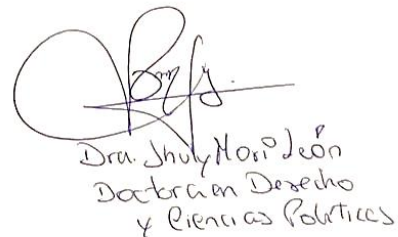 Dra. Jhuly Mori León
Doctora en Derecho
y Ciencias Políticas